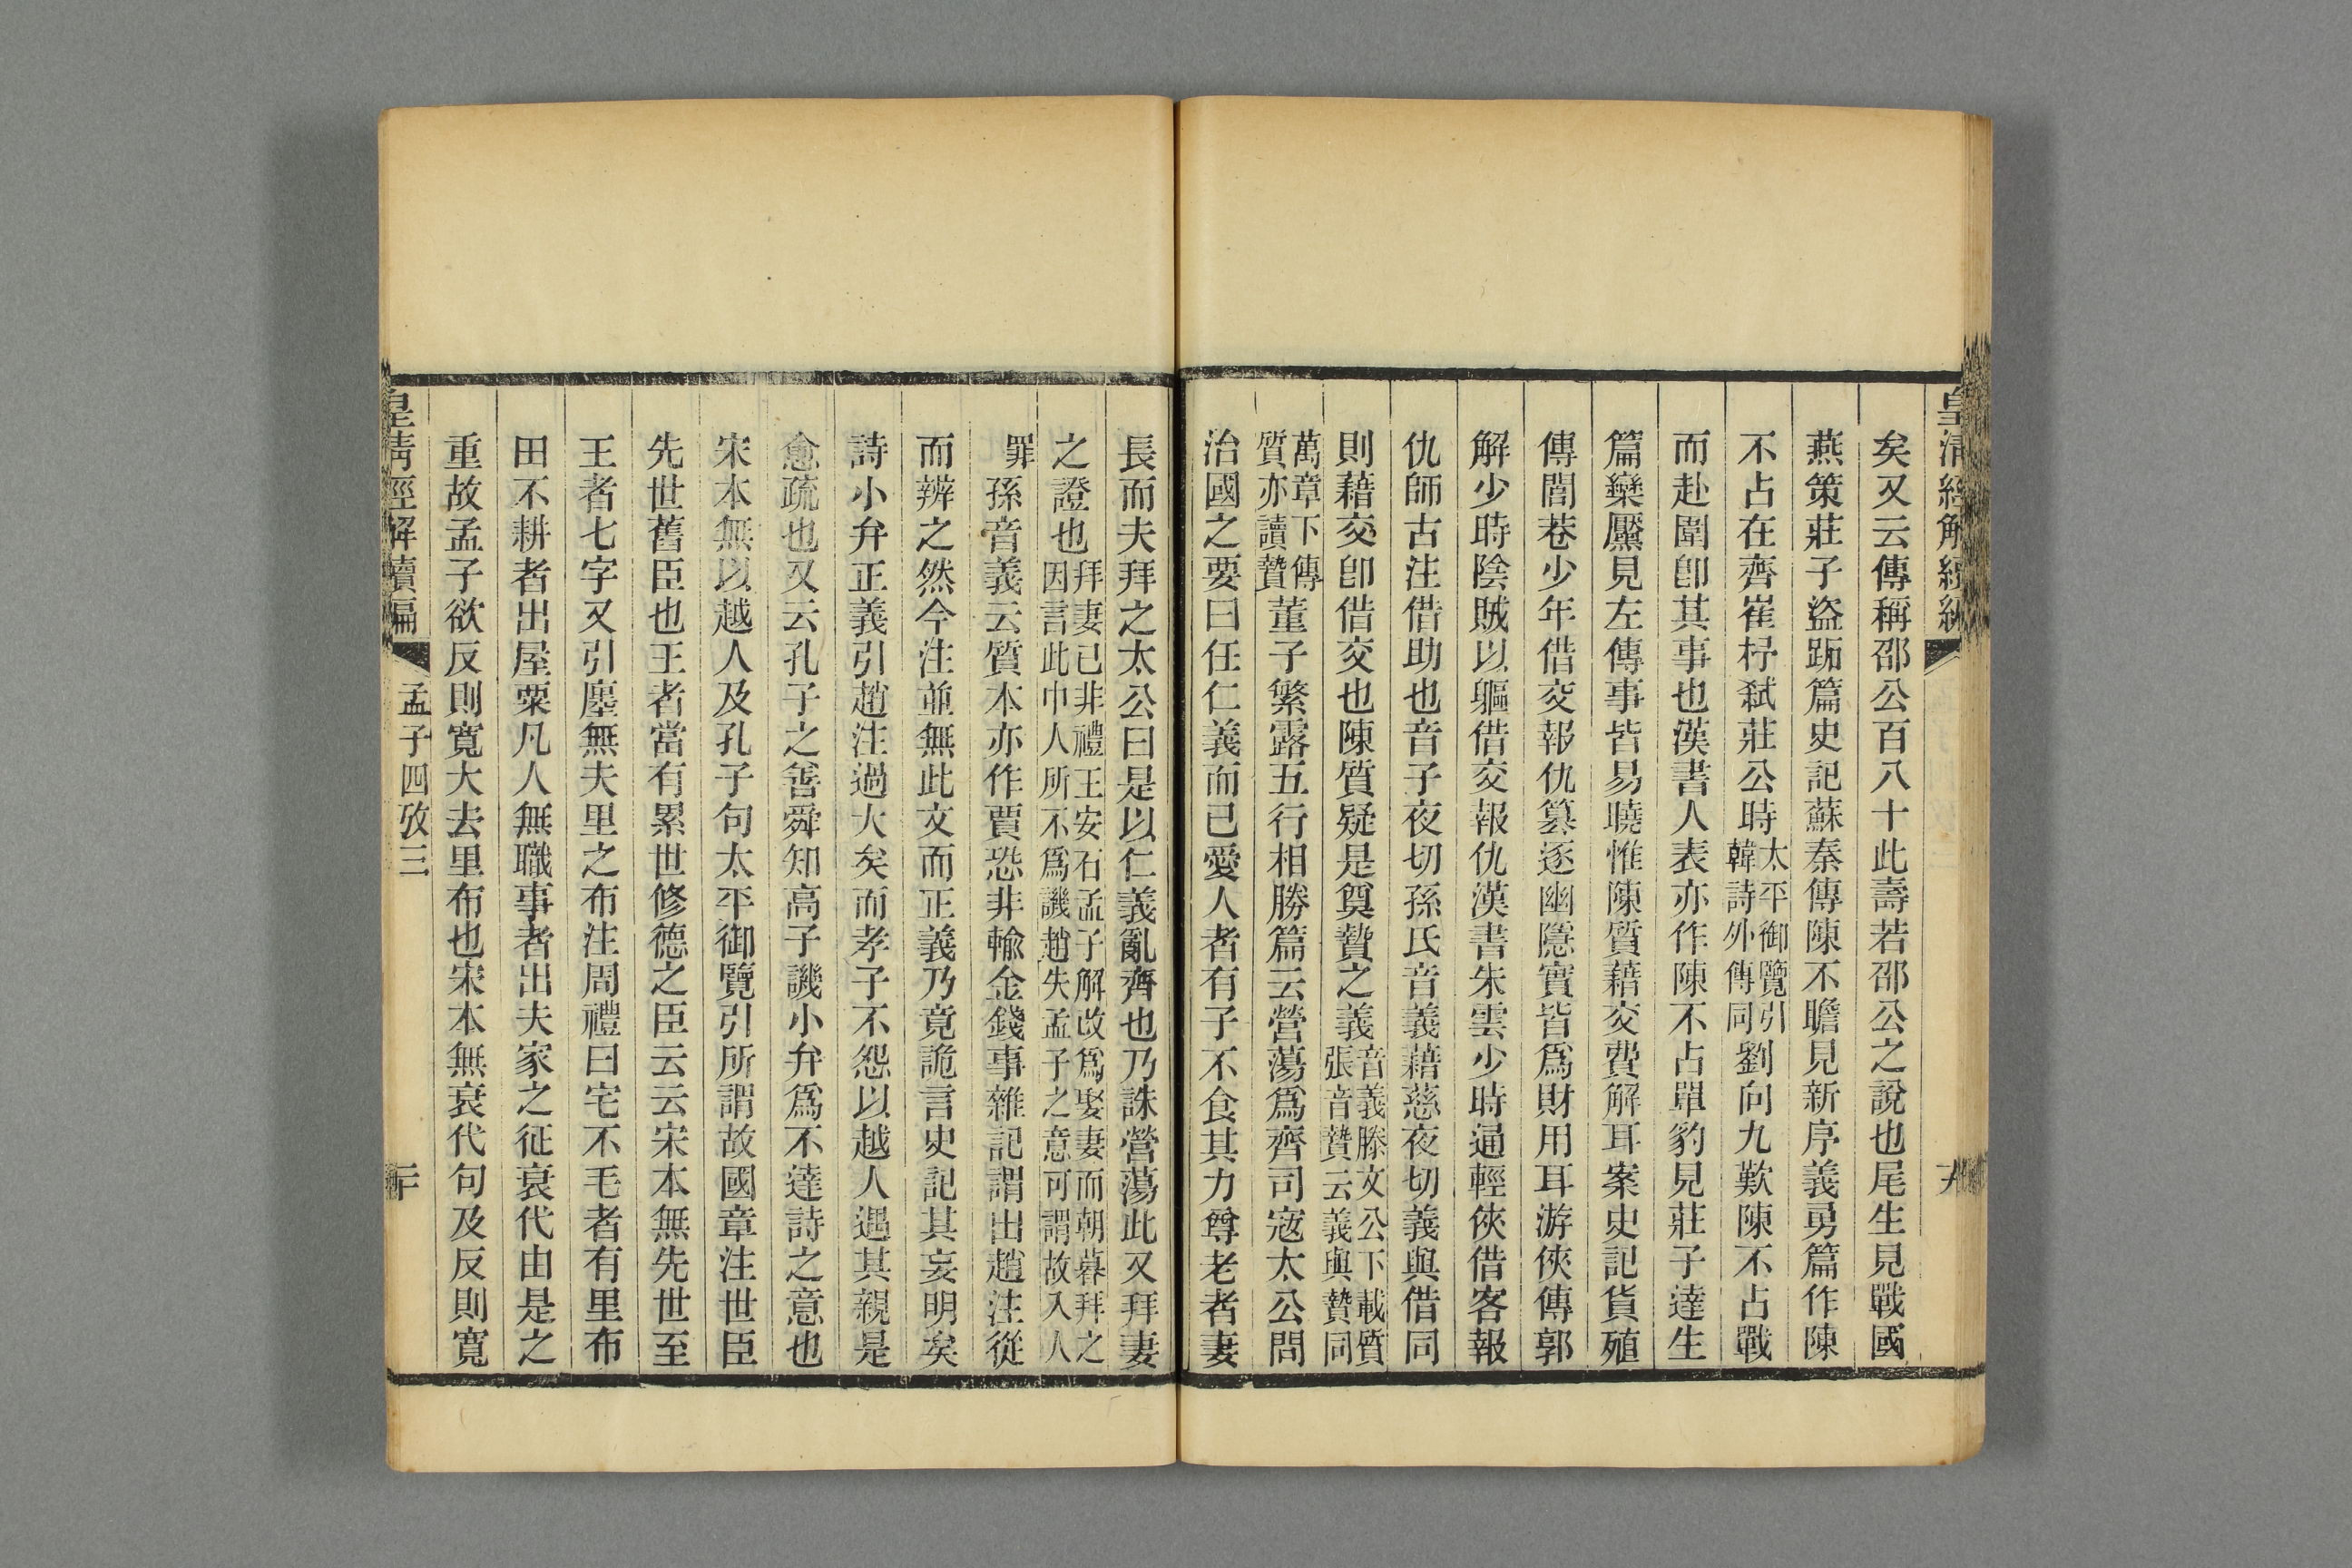 皇清經解續編
矣又云傳稱邵公百八十此壽若邵公之說也尾生見戰國
燕策莊子盜跖篇史記蘇秦傳陳不瞻見新序義勇篇作陳
不占在齊崔杼弑莊公時太平御覽引韓詩外傳同劉向九歎陳不占戰
而赴圍卽其事也漢書人表亦作陳不占單豹見莊子達生
篇欒黶見左傳事皆易曉惟陳質藉交費解耳案史記貨殖
傳閭巷少年借交報仇篡逐幽隱實皆爲財用耳游俠傳郭
解少時陰賊以軀借交報仇漢書朱雲少時通輕俠借客報
仇師古注借助也音子夜切孫氏音義藉慈夜切義與借同
則藉交卽借交也陳質疑是奠贄之義音義滕文公下載質張音贄云義與贄同
萬章下傳質亦讀贄董子繁露五行相勝篇云營蕩爲齊司寇太公問
治國之要曰任仁義而已愛人者有子不食其力尊老者妻
長而夫拜之太公曰是以仁義亂齊也乃誅營蕩此又拜妻
之證也拜妻已非禮王安石孟子解改爲娶妻而朝暮拜之因言此巾人所不爲譏趙失孟子之意可謂故入人
罪孫音義云質本亦作賈恐非輸金錢事雜記謂出趙注從
而辨之然今注並無此文而正義乃竟詭言史記其妄明矣
詩小弁正義引趙注過大矣而孝子不怨以越人遇其親是
愈疏也又云孔子之善舜知高子譏小弁爲不達詩之意也
宋本無以越人及孔子句太平御覽引所謂故國章注世臣
先世舊臣也王者當有累世修德之臣云云宋本無先世至
王者七字又引廛無夫里之布注周禮曰宅不毛者有里布
田不耕者出屋粟凡人無職事者出夫家之征衰代由是之
重故孟子欲反則寬大去里布也宋本無衰代句及反則寬
皇清經解續編 孟子四攷三 二十